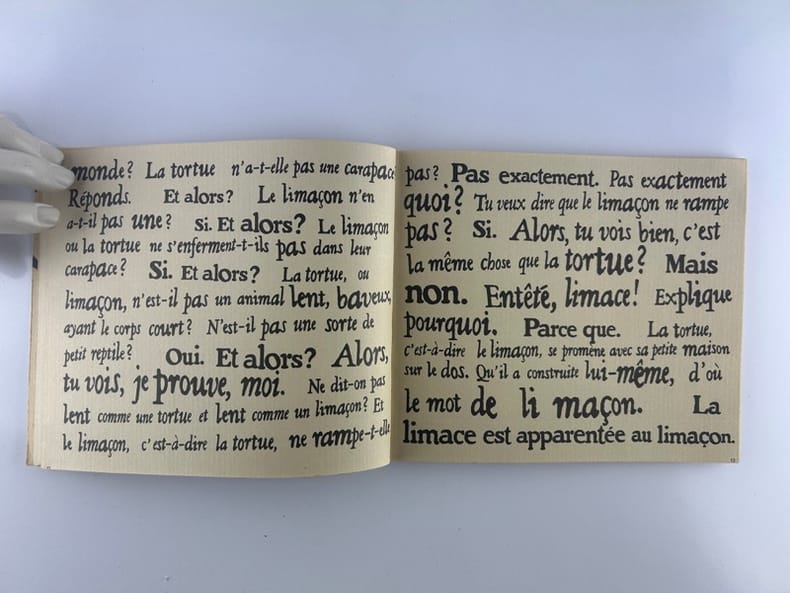 monde? La tortue n'a-t-elle pas une carapace
Réponds. Et alors? Le limaçon n'en
a-t-il pas une? Si. Et alors? Le limaçon
ou la tortue ne s'enferment-t-ils pas dans leur
carapace? Si. Et alors? La tortue, ou
limaçon, n'est-il pas un animal lent, baveux,
ayant le corps court? N'est-il pas une sorte de
petit reptile? Oui. Et alors? Alors,
tu vois, je prouve, moi. Ne dit-on pas
lent comme une tortue et lent comme un limaçon? Et
le limaçon, c'est-à-dire la tortue, ne rampe-t-elle
pas? Pas exactement. Pas exactement
quoi? Tu veux dire que le limaçon ne rampe
pas? Si. Alors, tu vois bien, c'est
la même chose que la tortue? Mais
non. Entêté, limace! Explique
pourquoi. Parce que. La tortue,
c'est-à-dire le limaçon, se promène avec sa petite maison
sur le dos. Qu'il a construite lui-même, d'où
le mot de li maçon. La
limace est apparentée au limaçon.